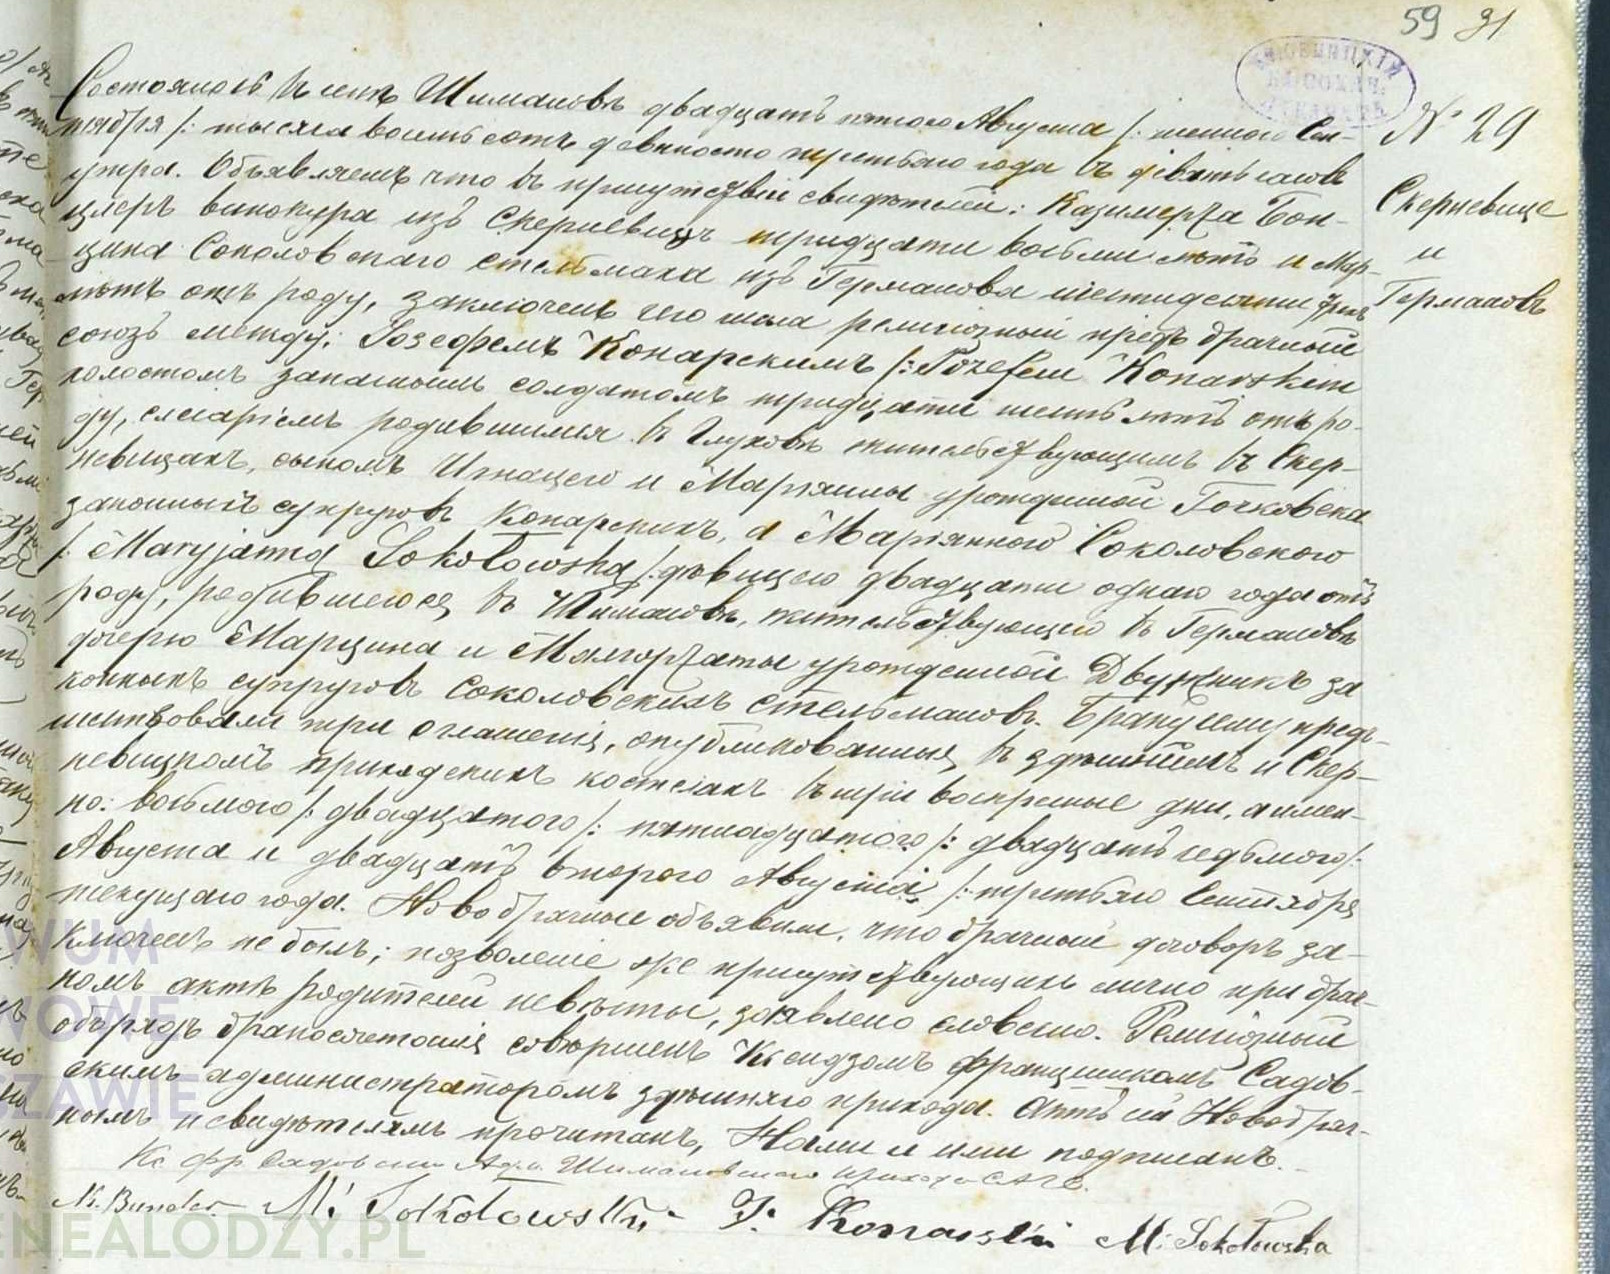 59 31
№ 29
Скерневице
и
Германовъ
Состоялось въ селѣ Шимановѣ двадцать пятого Августа /: шестого Сен-
тября /: тысяча восемьсотъ девяносто третьяго года въ девять часовъ
утра. Объявляемъ что въ присутствіи свидѣтелей: Казимержа Бон-
винокура изъ Скерневицъ тридцати восьми лѣтъ и Мар-
цина Соколовскаго стельмаха изъ Германова шестидесяти трехъ
лѣтъ отъ роду, заключенъ сего числа религіозный предъ брачный
союзъ между: Іозефемъ Конарскимъ /: Józefem Konarskim
холостомъ запаснымъ солдатомъ тридцати шесть лѣтъ отъ ро-
ду, слесаремъ родившимся въ Глуховѣ жительствующимъ въ Скер-
невицахъ, сыномъ Игнацего и Маріянны урожденной Гочковска
законныхъ супруговъ Конарскихъ, а Маріянною Соколовскою
/: Maryjanną Sokołowską /: дѣвицею двадцати одного года отъ
роду, родившеюся въ Шимановѣ, жительствующей въ Германовѣ
дочерью Марцина и Малгоржаты урожденной Двужникъ за
конныхъ супруговъ Соколовскихъ стельмаховъ. Браку сему пред-
шествовали три оглашенія, опубликованныя въ здѣшнемъ и Скер-
невицкомъ приходскихъ костелахъ въ три воскресные дни, а имен-
но: восьмого /: двадцатого /: пятнадцатого /: двадцать седьмого /:
Августа и двадцать второго Августа /: третьяго Сентября
текущаго года. Новобрачные объявили, что брачный договоръ за-
ключенъ не былъ; позволеніе же присутствующихъ лично при брач-
номъ актѣ родителей невѣсты, заявлено словесно. Религіозный
обрядъ бракосочетанія совершенъ Ксендзомъ Францишкомъ Садов-
скимъ администраторомъ здѣшняго прихода. Актъ сей Новобрач-
нымъ и свидѣтелямъ прочитанъ, Нами и ими подписанъ.
Кс Фр Садовски Адм. Шимановскаго прихода
M. Sokołowski J. Konarski M. Sokołowska
GENEALODZY.PL